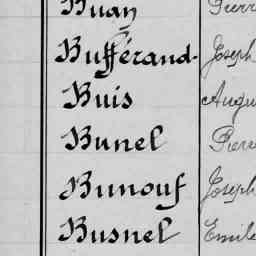 Buan Pierr
Bufférand Joseph
Buis Augu
Bunel Pierr
Bunouf Joseph
Busnel Emile